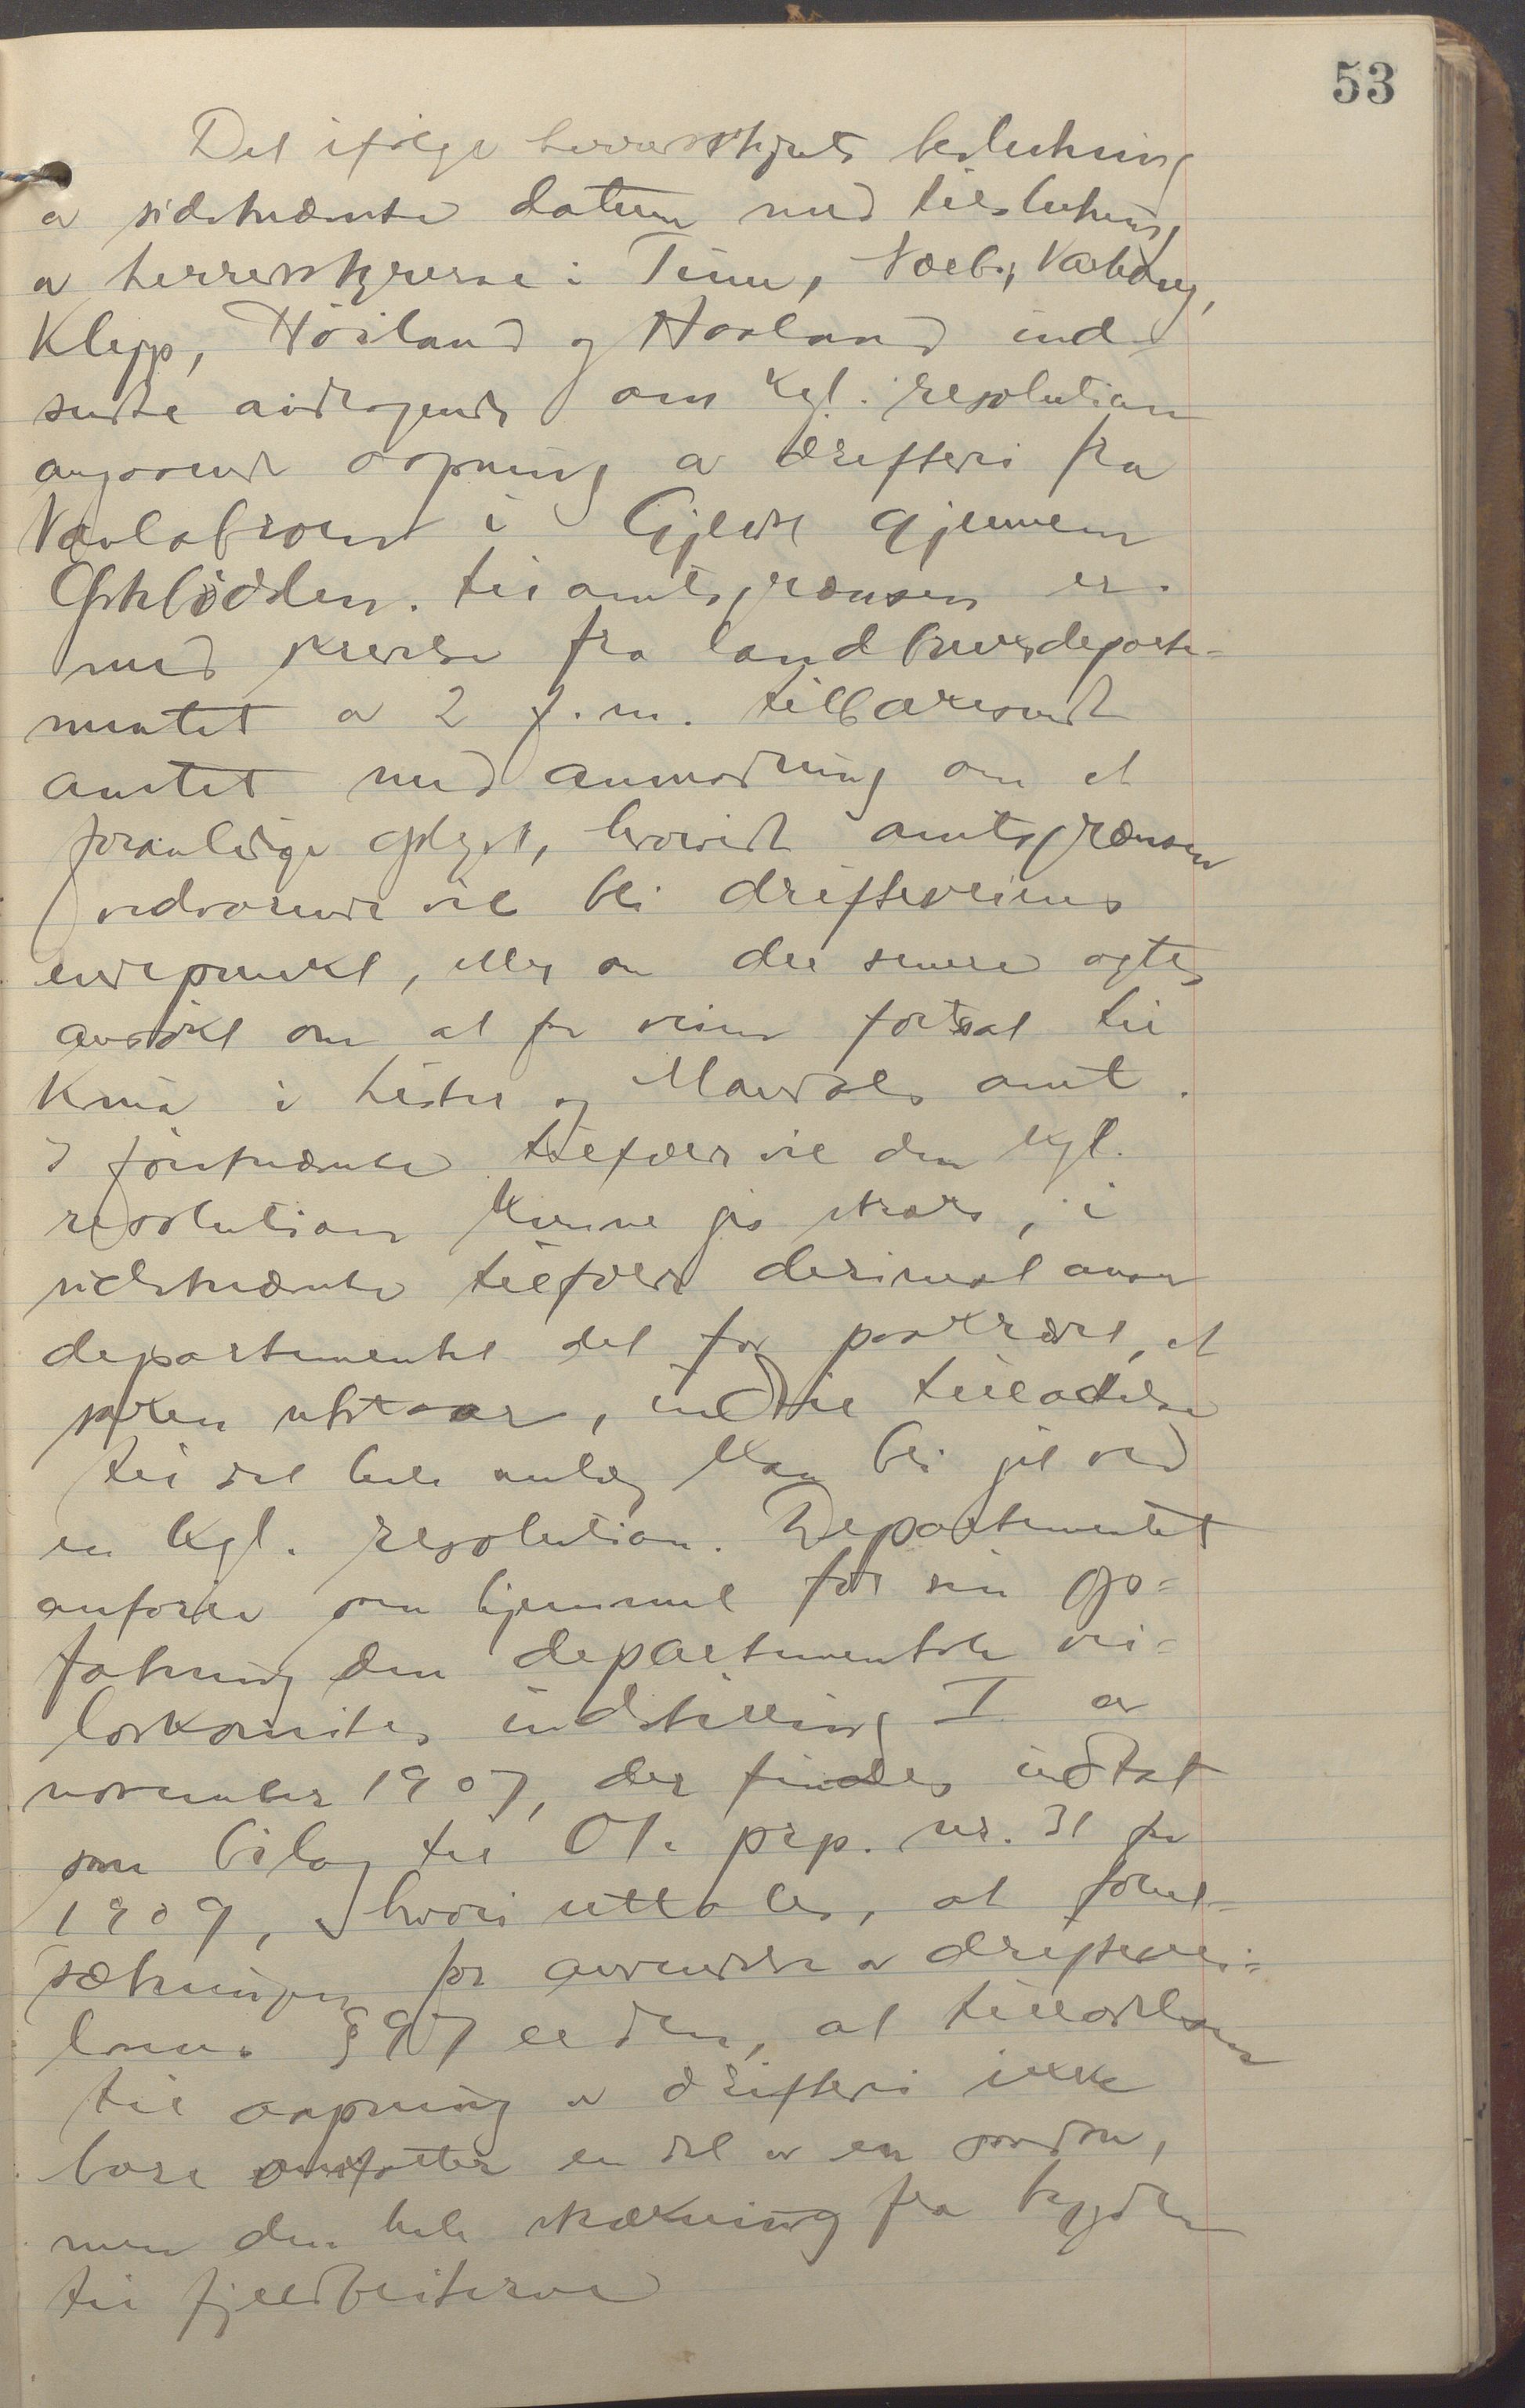 53
Det ifølge herredsstyrets beslutning
av sidstnævnte datum med tilslutning
av herredsstyrerne i Time, Nærbø, Varhaug,
Klepp, Höiland og Haaland ind-
sendte andragende om kgl. resolution
angaaende aapning av driftevei fra
i Gjesdal gjennem
til amtsgrænsen er
med skrivelse fra landbruksdeparte-
mentet av 2 f.m. tilbakesendt
amtet med anmodning om at
foranledige oplyst, hvorvidt amtsgrænsen
vedvarende vil bli drifteveiens
endepunkt, eller om der senere agtes
ansökt om at faa veien fortsat til
i Lister og Mandals amt.
I förstnævnte tilfælde vil den kgl.
resolution kunne gis straks, i
sidstnævnte tilfælde derimot anser
departementet det for paakrævet, at
saken utstaar, indtil tilladelse
til det hele anlæg kan bli git ved
en kgl. resolution. Departementet
anförer som hjemmel for sin op-
fatning den departementale vei-
lovkomites indstilling I av
november 1907, der findes indtat
som bilag til Ot. prp. nr. 31 for
1909, hvori uttales, at forut-
sætningen for anvendelse av driftevei-
lovens § 97 er den, at tilladelsen
til aapning av driftevei ikke
bare omfatter en del av en saadan,
men den hele strækning fra bygden
til fjeldbeiterne